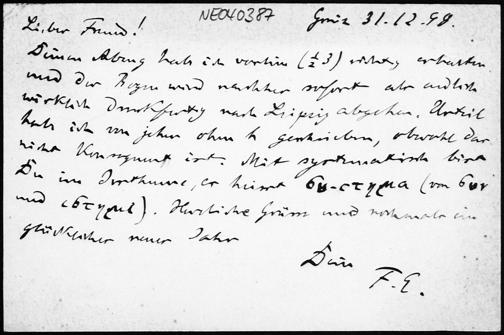 NE040387
Graz 31.12.98.
Lieber Freund!
Deinen Abzug hab ich vorhin (½3) richtig erhalten
und der Bogen wird nachher sofort als endlich
wirklich druckfertig nach Leipzig abgehen. Urteil
hab ich von jeher ohne h geschrieben, obwohl das
nicht konsequent ist. Mit systematisch bist
Du im Irrthume, es heisst συ-στημα (von συν
und ιστημι). Herzliche Grüsse und nochmals ein
glückliches neues Jahr
Dein
F. E.